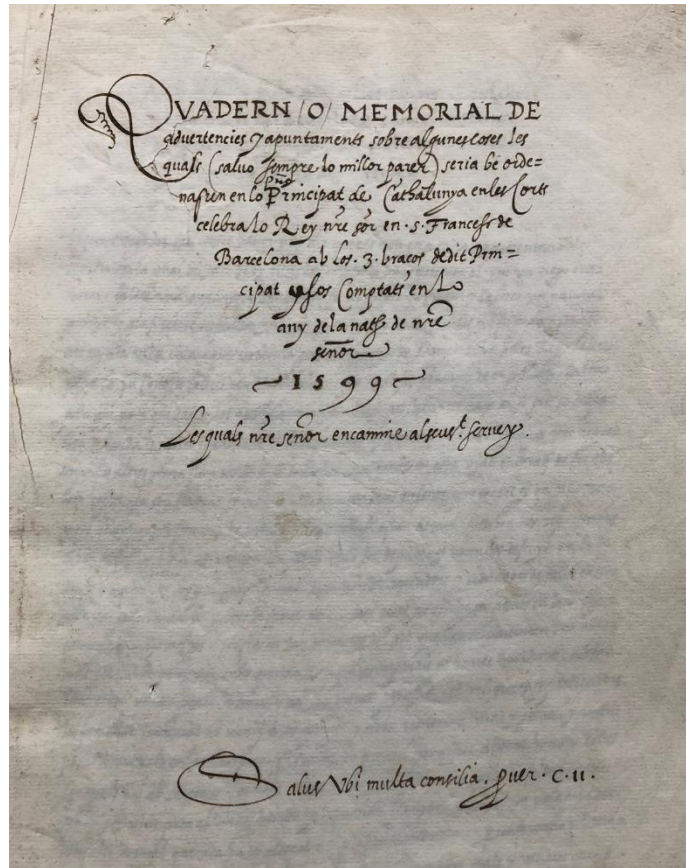 QVADERN /O/ MEMORIAL DE
advertencies y apuntaments sobre algunes coses les
quals (salvo sempre lo millor parer) seria be orde=
nassen en lo Principat de Cathalunya en les Corts
celebra lo Rey nre sor en .s. Francesc de
Barcelona ab los .3. braços de dit Prin=
cipat y sos Comptats en lo
any de la nat de nre
señor
1599
Les quals nre señor encamine al seu st. servey.
Salus Vbi multa consilia. prver. C. 11.